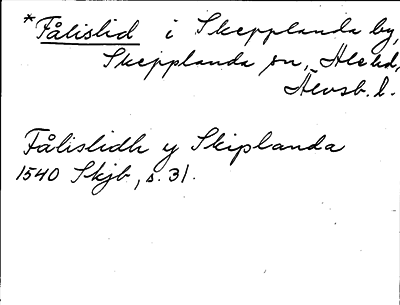 *Fålislid i Skepplanda by,
Skepplanda sn, Ale hd,
Älvsb. l.
Fålislidh y Skiplanda
1540 Skjb, s. 31.